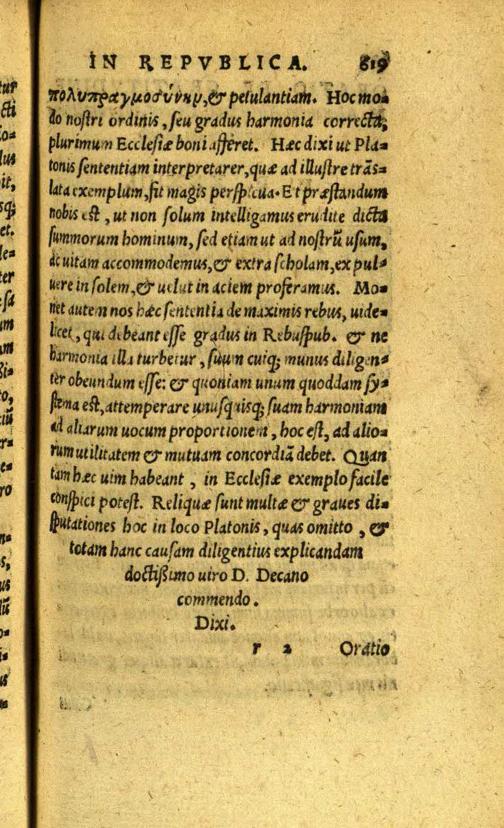 IN REPVBLICA. 819
πολυπραγμοσύνην, & petulantiam. Hoc mo=
do nostri ordinis, seu gradus harmonia correcta,
plurimum Ecclesiæ boni afferet. Hæc dixi ut Pla=
tonis sententiam interpretarer, quæ ad illustre trās=
lata exemplum, fit magis perspicua. Et præstandum
nobis est, ut non solum intelligamus erudite dicta
summorum hominum, sed etiam ut ad nostrū usum,
ac uitam accommodemus, & extra scholam, ex pul=
uere in solem, & uelut in aciem proferamus. Mo=
net autem nos hæc sententia de maximis rebus, uide=
licet, qui debeant esse gradus in Rebuspub. & ne
harmonia illa turbetur, suum cuiq; munus diligen=
ter obeundum esse: & quoniam unum quoddam sy=
stema est, attemperare unusquisq; suam harmoniam
ad aliarum uocum proportionem, hoc est, ad alio=
rum utilitatem & mutuam concordiā debet. Quan
tam hæc uim habeant, in Ecclesiæ exemplo facile
conspici potest. Reliquæ sunt multæ & graues di=
sputationes hoc in loco Platonis, quas omitto, &
totam hanc causam diligentius explicandam
doctissimo uiro D. Decano
commendo.
Dixi.
r 2 Oratio